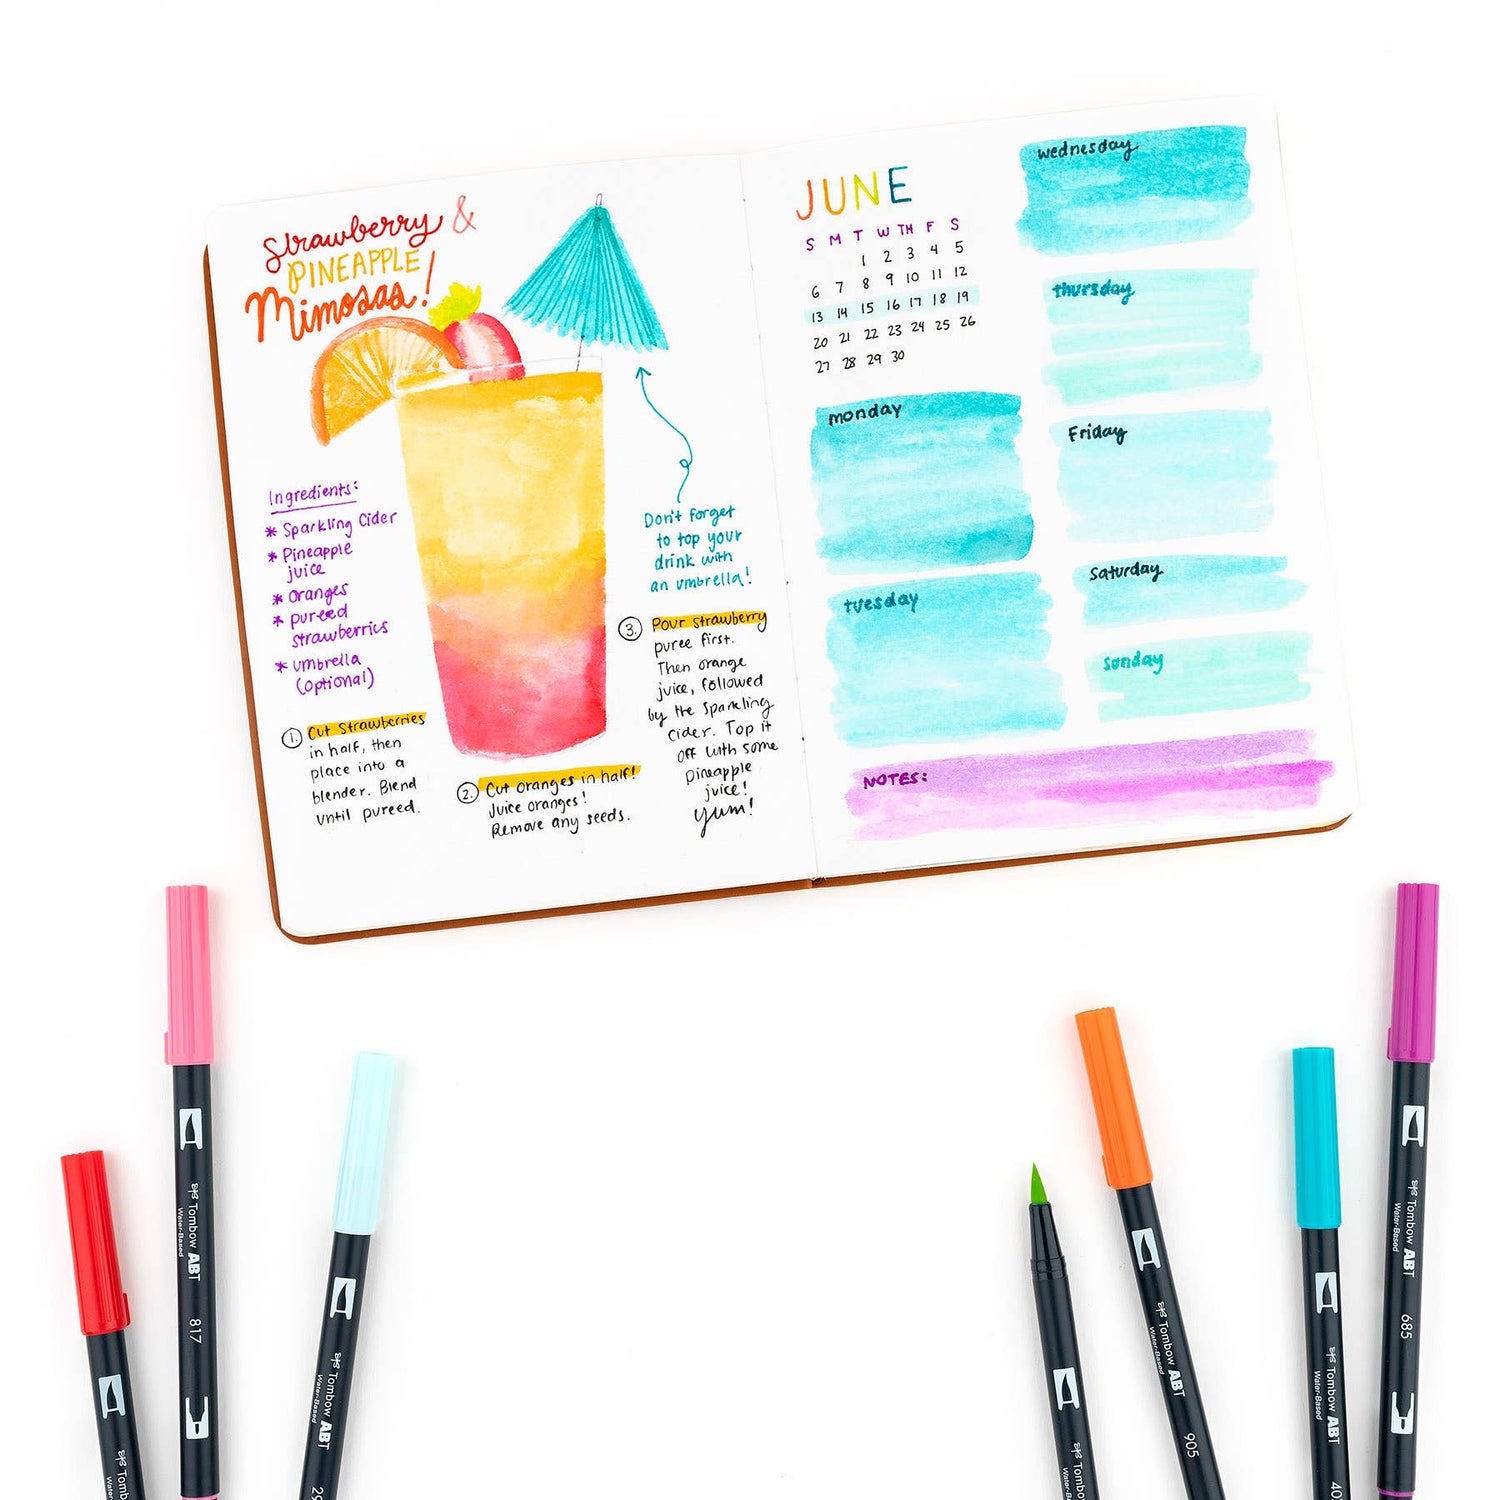 Strawberry &
PINEAPPLE
Mimosas!
Ingredients:
* Sparkling Cider
* Pineapple
juice
* Oranges
* pureed
strawberries
* umbrella
(optional)
Don't forget
to top your
drink with
an umbrella!
1. Cut Strawberries
in half, then
place into a
blender. Blend
until pureed.
2. Cut oranges in half!
Juice oranges!
Remove any seeds.
3. Pour Strawberry
puree first.
Then orange
juice, followed
by the sparkling
cider. Top it
off with some
pineapple
juice!
yum!
JUNE
S M T W TH F S
1 2 3 4 5
6 7 8 9 10 11 12
13 14 15 16 17 18 19
20 21 22 23 24 25 26
27 28 29 30
monday
tuesday
wednesday
thursday
Friday
Saturday
Sunday
NOTES:
Tombow
Water-Based
Tombow ABT
Water-Based
817
Tombow ABT
Water-Based
29
Tombow
Water-Based
Tombow ABT
Water-Based
905
Tombow ABT
Water-Based
40
Tombow ABT
Water-Based
685